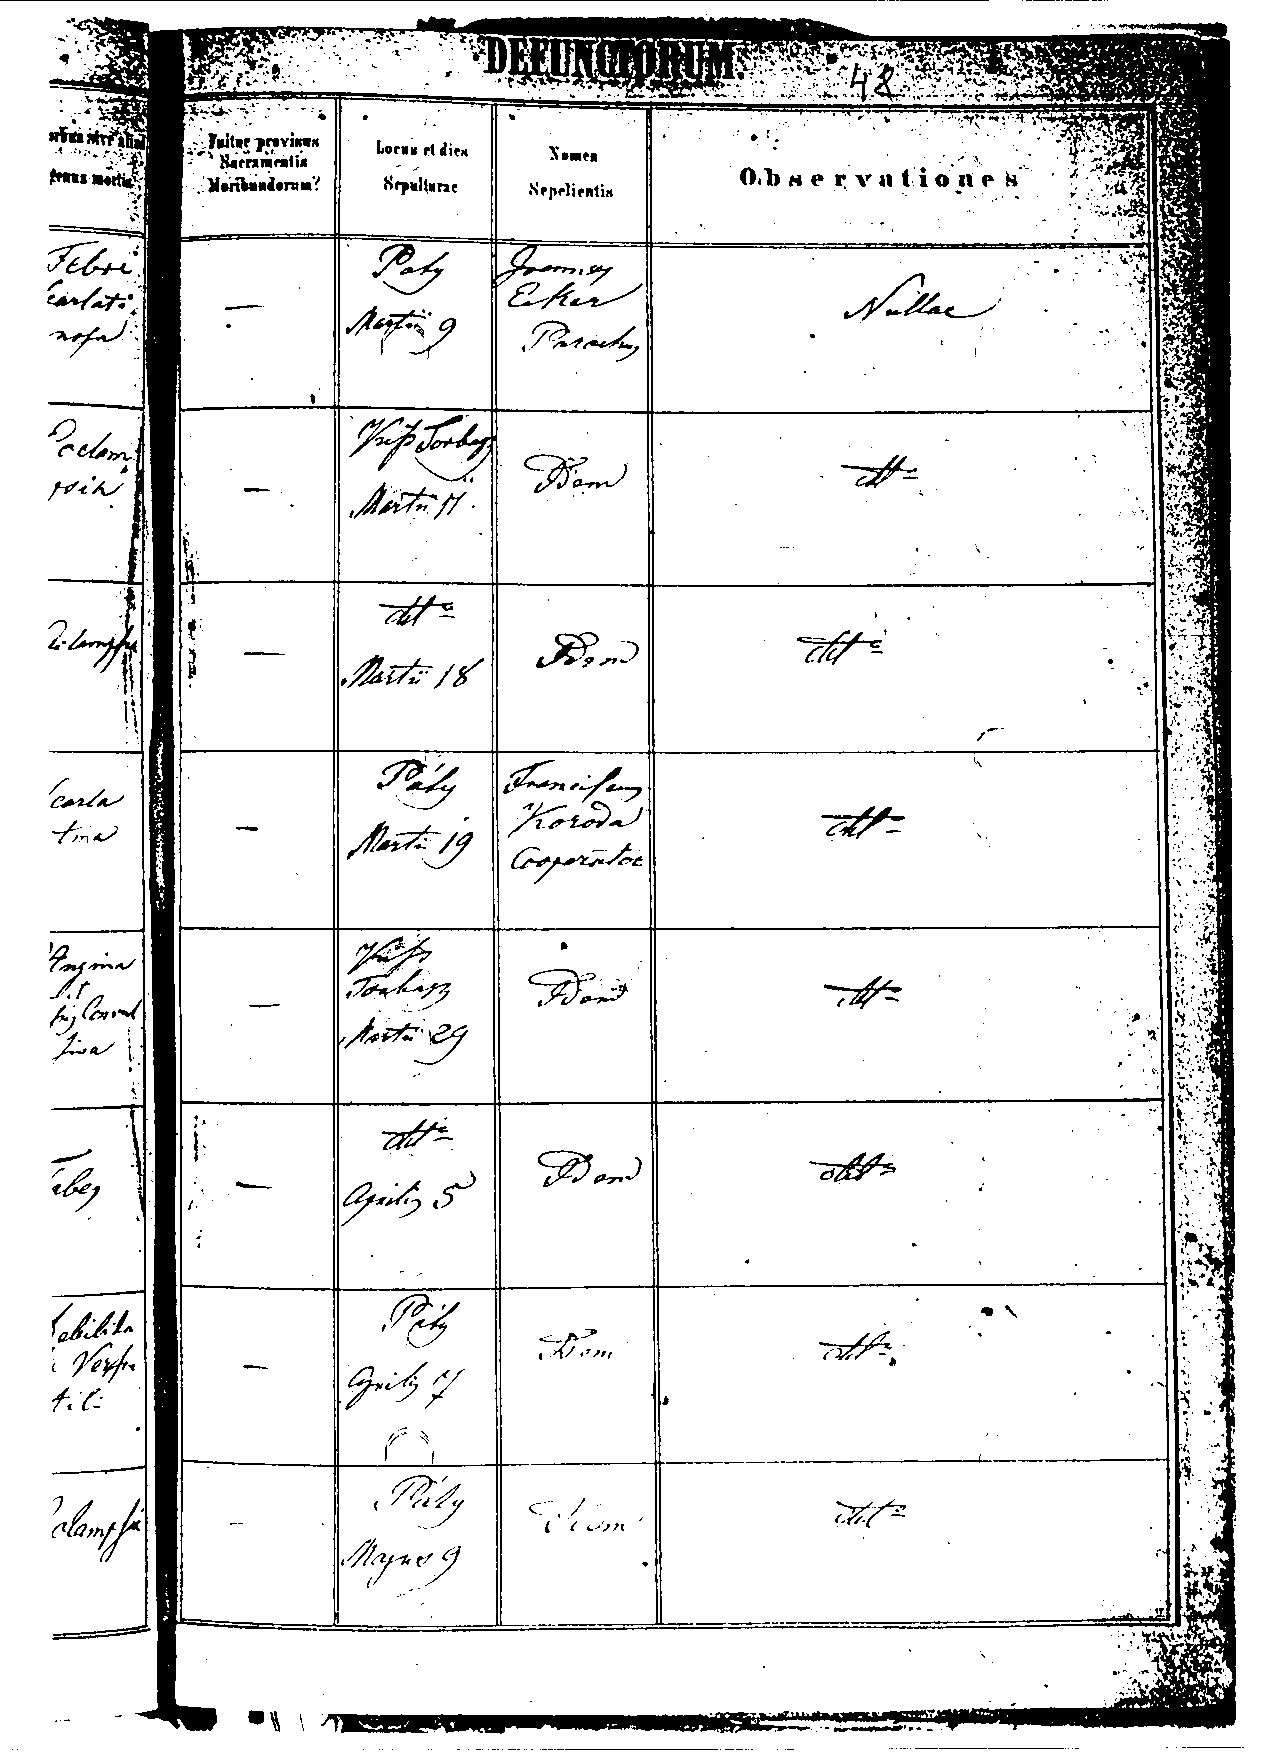 DEFUNCTORUM.
48
Fuitne provisus
Sacramentis
Moribundorum?
Locus et dies
Sepulturae
Nomen
Sepelientis
Observationes
Febri
carlati
nosa
—
Paty
Martii 9
Joannes
Eiker
Parochus
Nullae
—
Kiss Torbagy
Martii 11
Idem
dtto
—
dtto
Martii 18
Idem
dtto
carla
tina
—
Páty
Martii 19
Franciscus
Koroda
Cooperator
dtto
Angina
—
Kiss
Torbagy
Martii 29
Idem
dtto
abes
—
dtto
Aprilis 5
Idem
dtto
—
Páty
Aprilis 7
Idem
dtto
clampsia
—
Páty
9
Idem
dtto